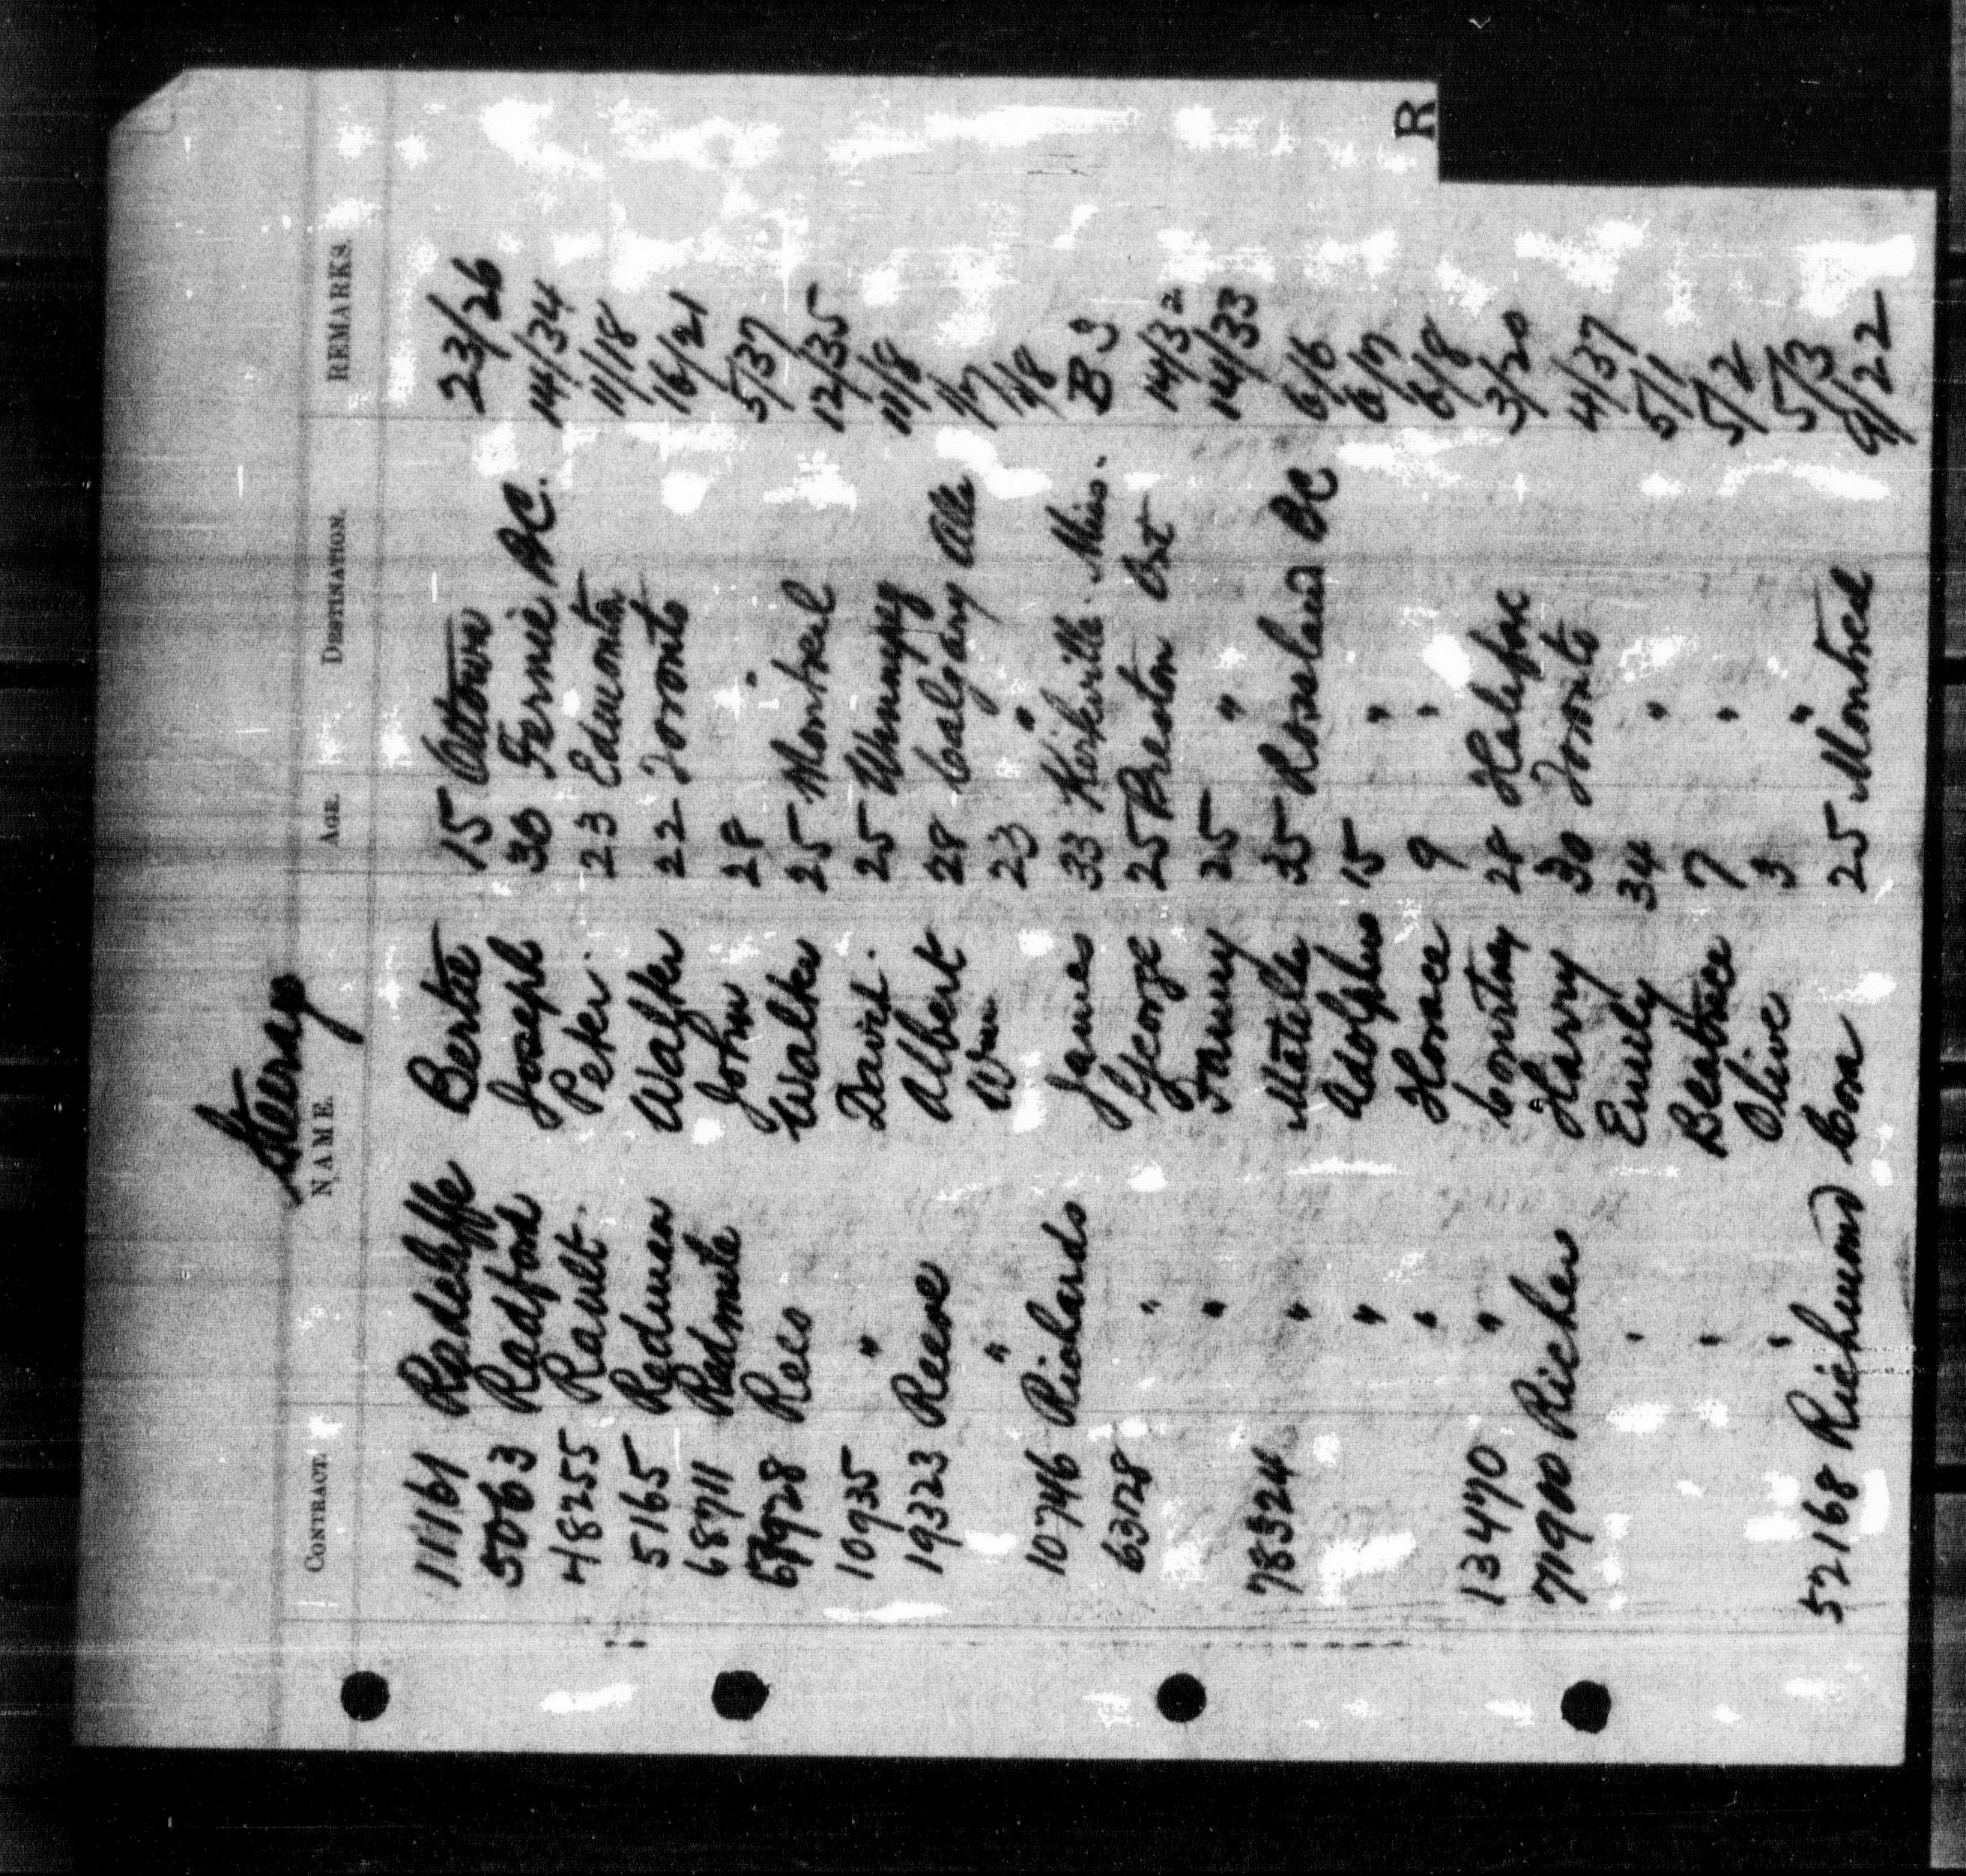 R
Steerag
CONTRACT. NAME. AGE. DESTINATION. REMARKS.
11161 Radcliffe Bertie 15 Ottawa 23/26
5063 Radford Joseph 30 Fernie BC. 14/34
48255 Rault. Peter. 23 Edmonton 11/18
5165 Redman Walter 22 Toronto 16/21
68711 Redmile John 28 " 5/37
Rees Walter 25 Montreal 12/35
10935 " David. 25 Winnipeg 11/8
19323 Reeve Albert 28 Calgary Alb 1/7
" Wm 23 " 1/8
10746 Richards James 33 Kirkville Miss. B 3
63128 " George 25 Preston Ont 14/32
" Fanny 25 " 14/33
78324 " Matilda 35 Rossland BC 6/6
" Adolphus 15 " 6/7
" Horace 9 " 6/8
13470 " Courtney 28 Halifax 3/20
71900 Riches Harry 30 Toronto 4/37
" Emily 34 " 5/1
" Beatrice 7 " 5/2
" Olive 3 " 5/3
52168 Richmond Cora 25 Montreal 9/22